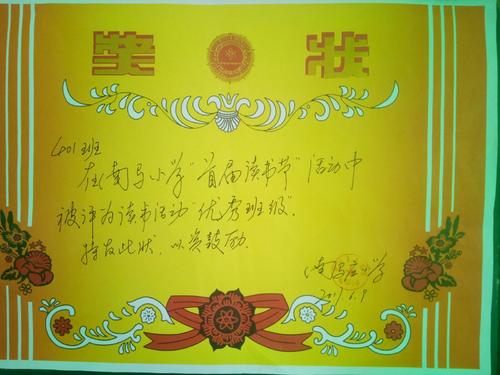 奖 状
401班
在"南马小学"首届读书节"活动中
被评为读书活动"优秀班级".
特发此状,以资鼓励.
南马小学